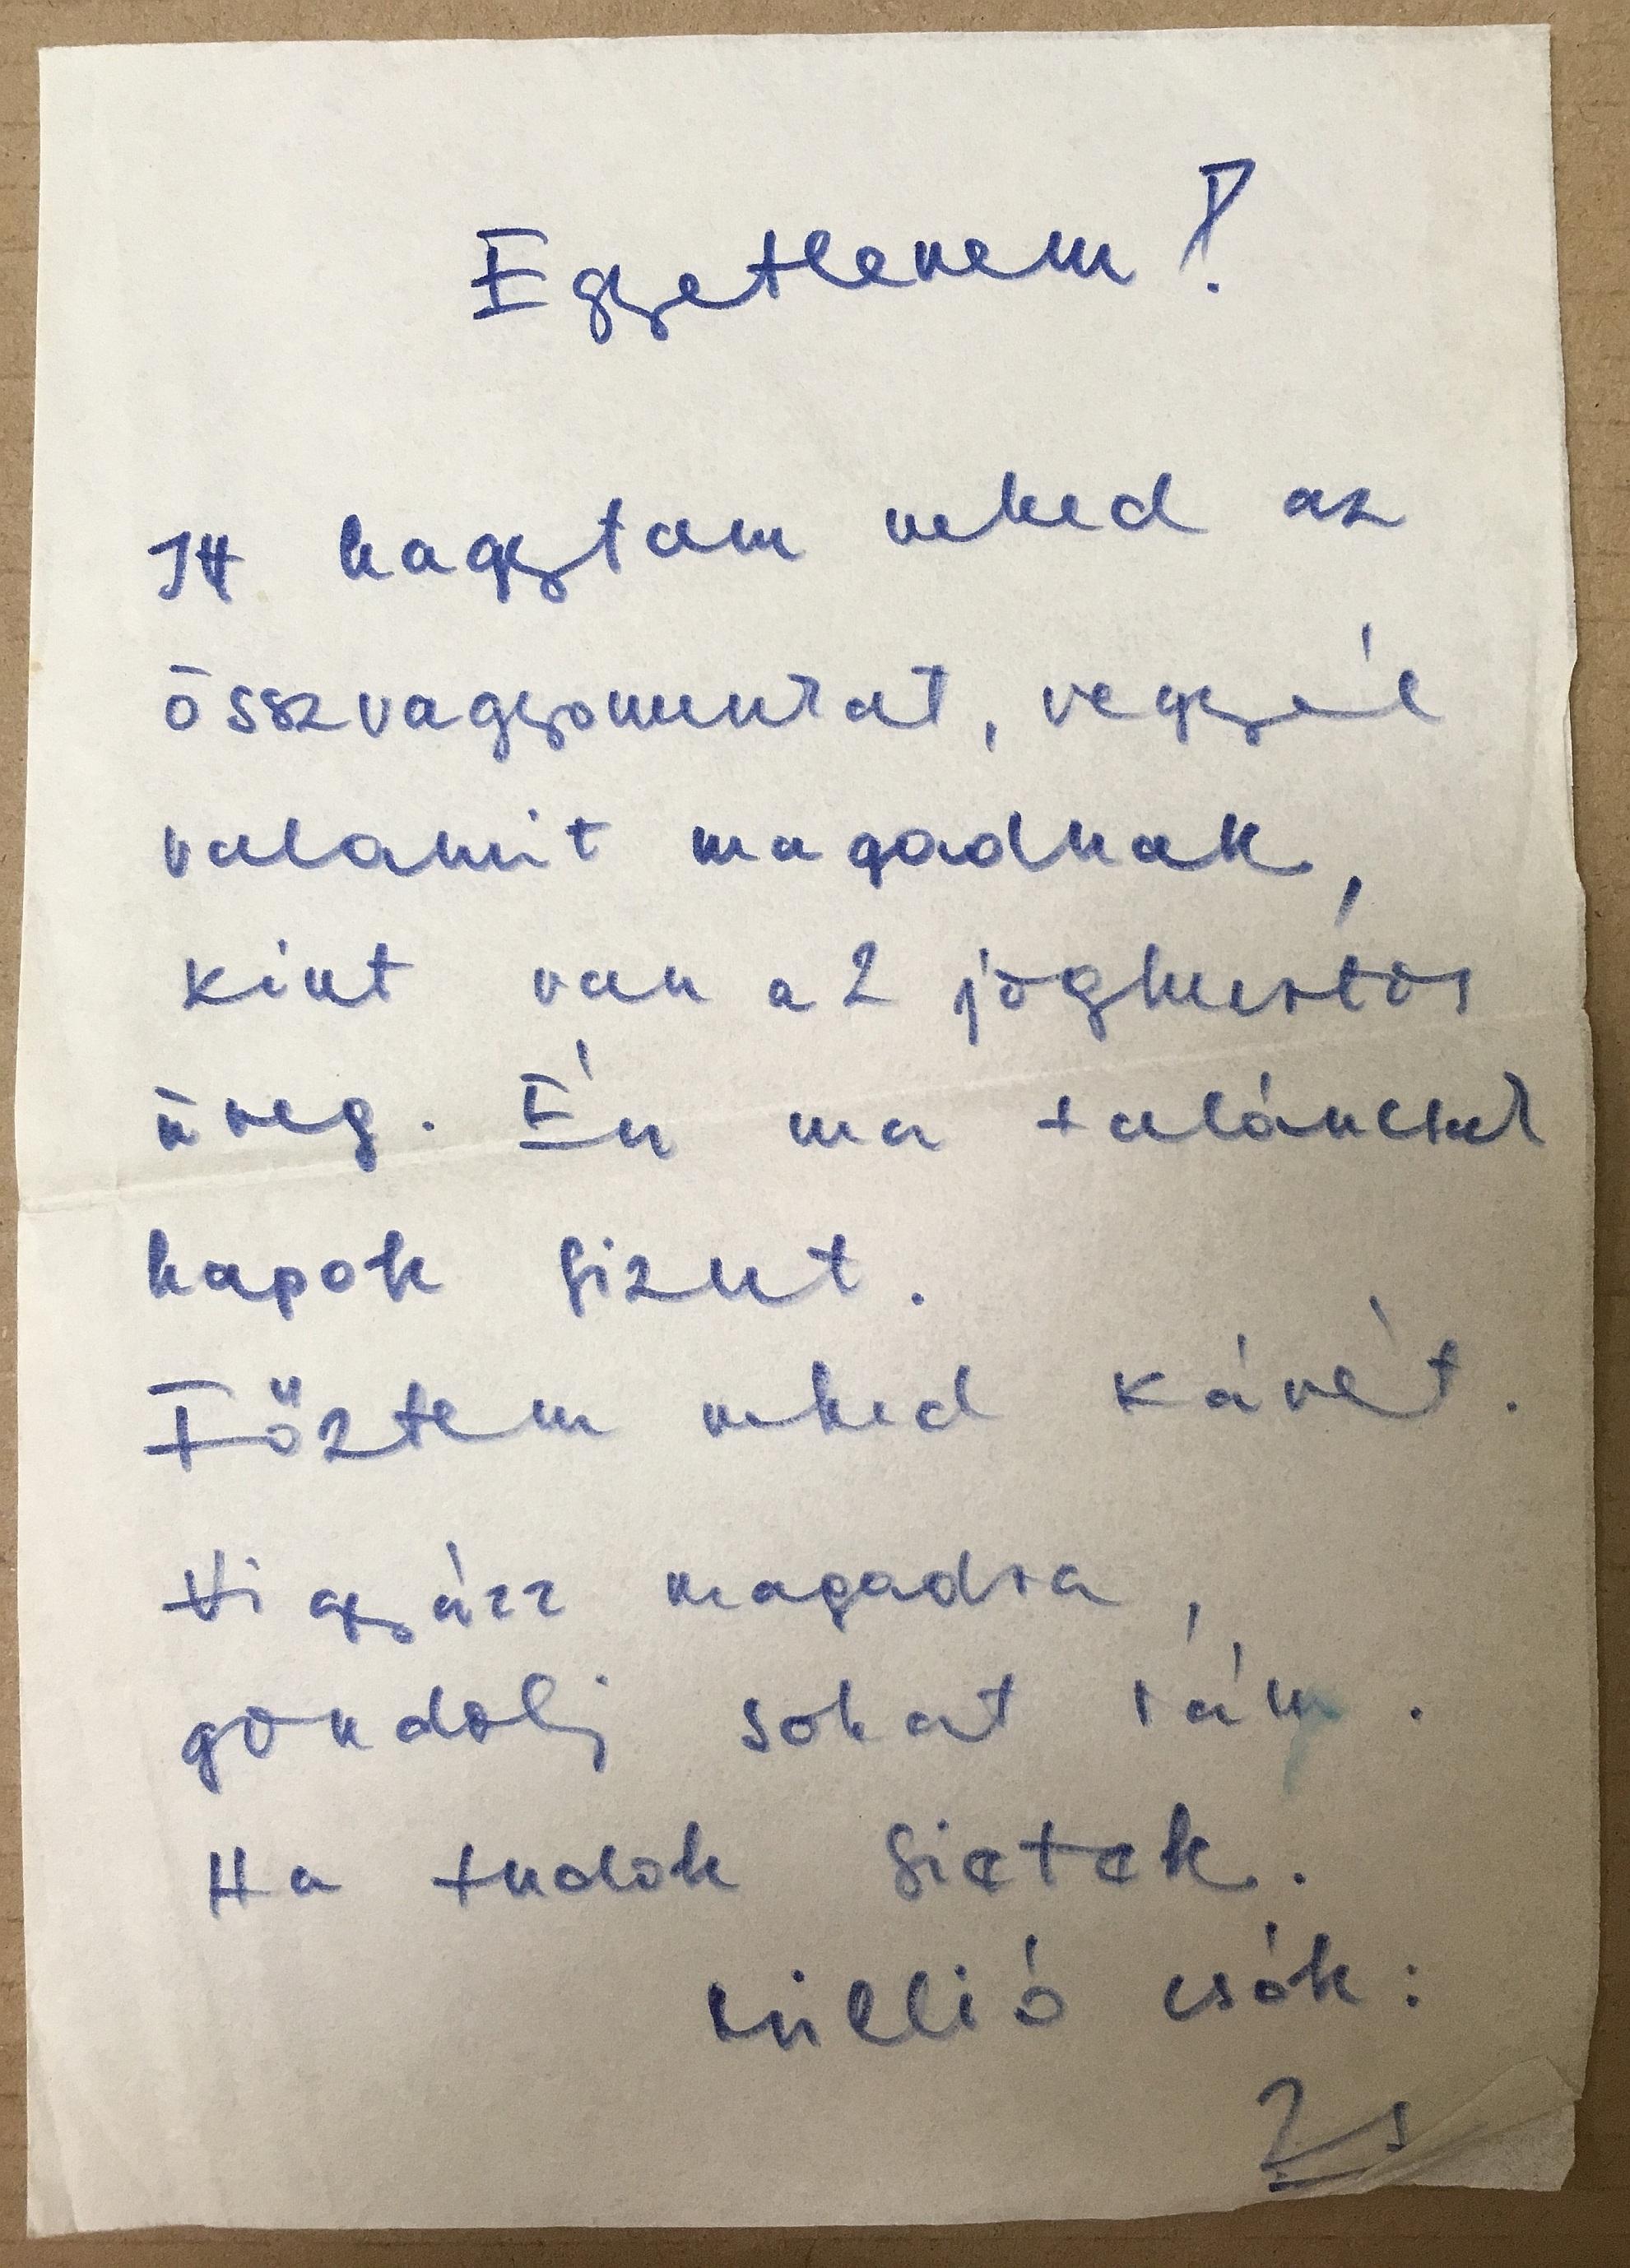 Egyetlenem!
Itt hagytam neked az
összvagyonunkat, vegyél
valamit magadnak,
kint van a 2 joghurtos
üveg. Én ma talán
kapok fizut.
Főztem neked kávét.
Vigyázz magadra,
gondolj sokat rám.
Ha tudok sietek.
Millió csók:
Zs